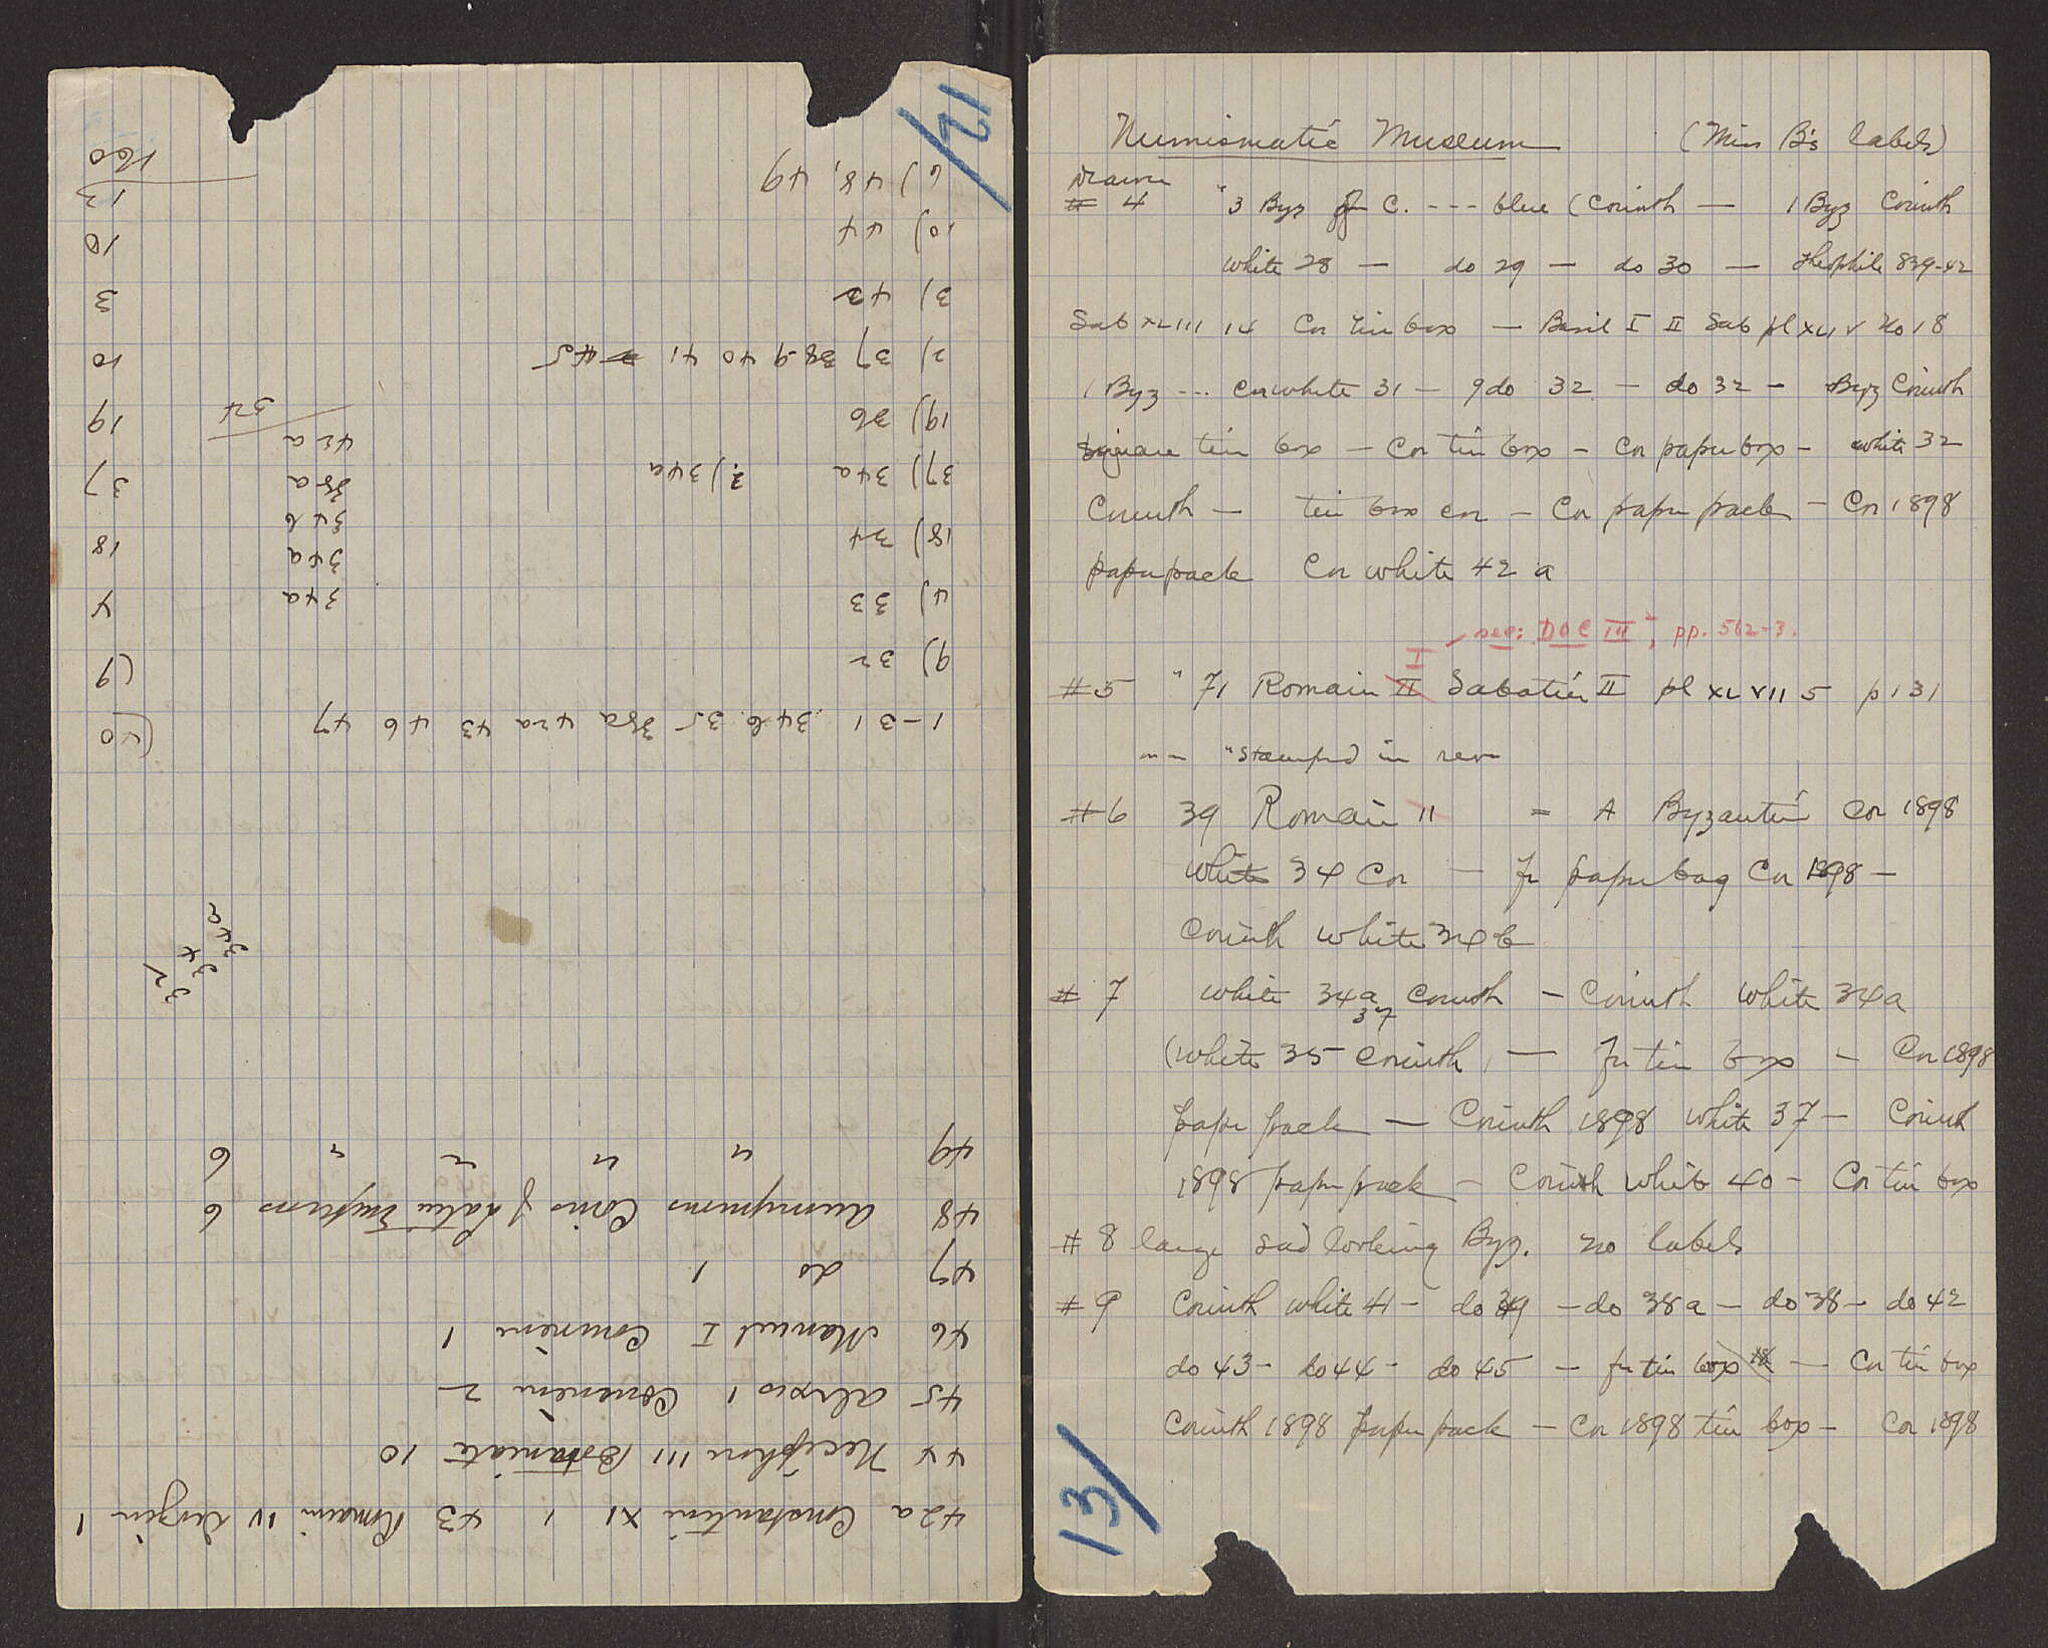 42a Constantin XI 1 43 Romain IV Diogén 1
44 Nicéphore III Botaniate 10
45 Alexis 1 Comnène 2
46 Manuel I Comnène 1
47 do 1
48 Anonymous Coins of Latin Emperors 6
49 " " " " 6
32
34
34a
1-31 34b 35 38a 42a 43 46 47 (40
9) 32 (9
4) 33 4 34a
18) 34 18 34a
34b
37) 34a 2) 34a 37 38a
42a
19) 36 19 54
2) 37 38-9 40 41 #45 10
3) 42 3
10) 44 10
6) 48, 49 13
160
12/
Numismatic Museum (Miss B's labels)
Drawer
# 4 "3 Byz fr C. --- blue (Corinth — 1 Byz Corinth
white 28 — do 29 — do 30 — Theophile 839-42
Sab XLIII 14 Cor tin box — Basil I II Sab pl XLIV No 18
1 Byz --- Cor white 31 — 9 do 32 — do 32 — Byz Corinth
square tin box — Cor tin box — Cor paper box — white 32
Corinth — tin box Cor — Cor paper pack — Cor 1898
paper pack Cor white 42 a
see: DOC III, pp. 562-3.
I
#5 "71 Romain II Sabatier II pl XLVII 5 p 131
"stamped in rev
#6 39 Romain II = A Byzantin Cor 1898
white 34 Cor — fr paper bag Cor 1898 —
Corinth white 34b
# 7 white 34a Corinth — Corinth white 34a
37
(white 35 Corinth) — fr tin box — Cor 1898
paper pack — Corinth 1898 white 37 — Corinth
1898 paper pack — Corinth white 40 — Cor tin box
# 8 large sad looking Byz. no labels
# 9 Corinth white 41 — do 39 — do 38a — do 38 — do 42
do 43 — do 44 — do 45 — fr tin box — Cor tin box
Corinth 1898 paper pack — Cor 1898 tin box — Cor 1898
13/